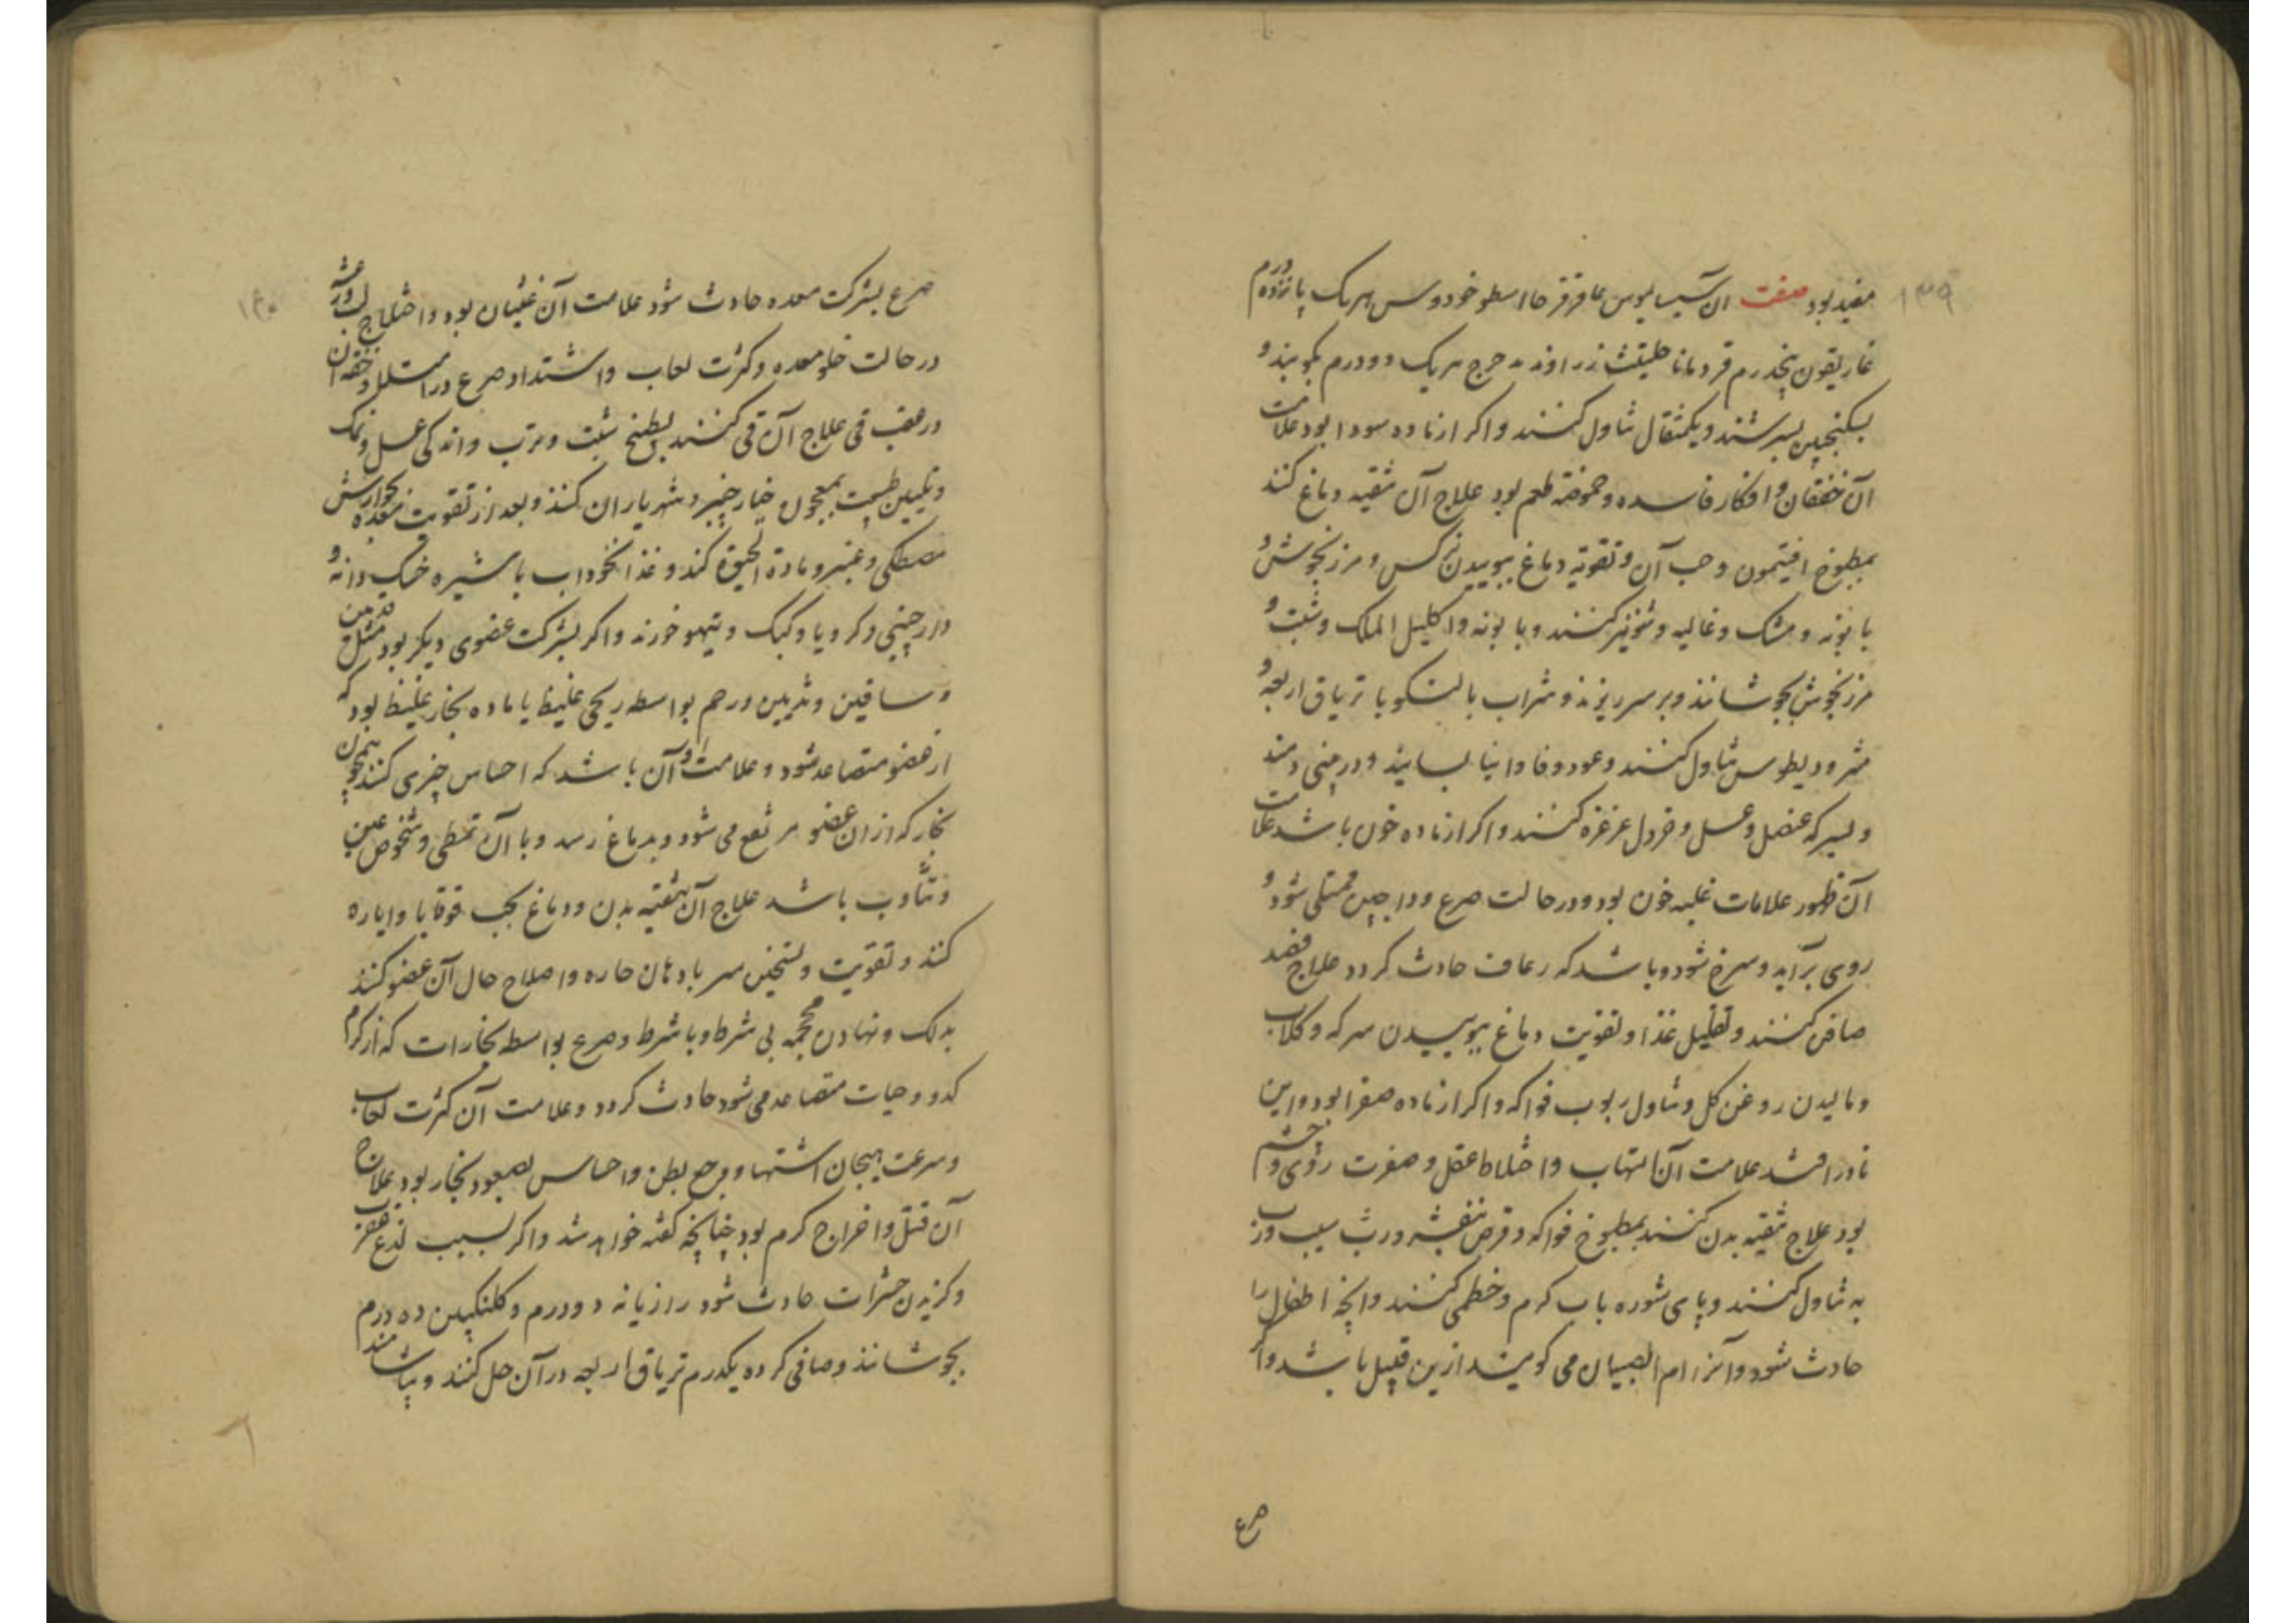 ۱۳۹
مفید بود صفت آن سیسالیوس عاقرقرحا اسطوخودوس هریک پانزده درم
غاریقون پنجدرم قردمانا حلتیت زراوند مدحرج هریک دو درم بکوبند و
بسکنجبین بسرشند و یکمثقال تناول کنند و اکر از ماده سودا بود علامت
آن خفقان و افکار فاسده و حموضة طعم بود علاج آن تنقیه دماغ کنند
بمطبوخ افتیمون و حب آن و تقویة دماغ ببوییدن نرکس و مرزنجوش و
بابونه و مشک و غالیه و شونیز کنند و بابونه و اکلیل الملک و شبت و
مرزنجوش بجوشانند و بر سر ریزند و شراب بالنکو با تریاق اربعه و
مثرودیطوس تناول کنند و عود و فاوانیا بسایند و در بینی دمند
و بسرکه عنصل و عسل و خردل غرغره کنند و اکر از ماده خون باشد علامت
آن ظهور علامات غلبه خون بود و در حالت صرع وداجین ممتلی شود و
روی برآید و سرخ شود و باشد که رعاف حادث کردد علاج فصد
صافن کنند و تقلیل غذا و تقویت دماغ ببوییدن سرکه و کلاب
و مالیدن روغن کل و تناول ربوب فواکه و اکر از ماده صفرا بود و این
نادر افتد علامت آن التهاب و اختلاط عقل و صفرت روی و چشم
بود علاج تنقیه بدن کنند بمطبوخ فواکه و قرص بنفشه و رب سیب و رب
به تناول کنند و پای شوره باب کرم و خطمی کنند و آنچه اطفال را
حادث شود و آنرا ام الصبیان می کویند ازین قبیل باشد و اکر
صرع
۱۴۰
صرع بشرکت معده حادث شود علامت آن غثیان بود و اختلاج لب و رعشه
در حالت خلو معده و کثرت لعاب و اشتداد صرع در امتلا و خفة آن
در عقب قی علاج آن قی کنند بطبخ شبت و ترب و اندکی عسل و نمک
و تلیین طبیعت بمعجون خیارچنبر و شهریاران کنند و بعد از تقویت معده بجوارش
مصطکی و عنبر و مادة الحیوة کنند و غذا نخوداب با شیره خسک دانه و
دارچینی و کرویا و کبک و تیهو خورند و اکر بشرکت عضوی دیکر بود مثل قدمین
و ساقین و ثدیین و رحم بواسطه ریحی غلیظ یا ماده بخار غلیظ بود که
از عضو متصاعد شود و علامت آن باشد که احساس چیزی کنند همچون
بخار که از ان عضو مرتفع می شود و بدماغ رسد و با آن تمطی و شخوص عین
و تثاوب باشد علاج آن تنقیه بدن و دماغ بحب قوقایا و ایاره
کنند و تقویت و تسخین سر بادهان حاره و اصلاح حال آن عضو کنند
بدلک و نهادن محجمه بی شرط و با شرط و صرع بواسطه بخارات که از کرم
کدو و حیات متصاعد می شود حادث کردد و علامت آن کثرت لعاب
و سرعت هیجان اشتها و وجع بطن و احساس بصعود بخار بود علاج
آن قتل و اخراج کرم بود چنانچه کفته خواهد شد و اکر بسبب لذع عقرب
و کزیدن حشرات حادث شود رازیانه دو درم و کلنکبین ده درم
بجوشانند و صافی کرده یکدرم تریاق اربعه در آن حل کنند و بیاشامند